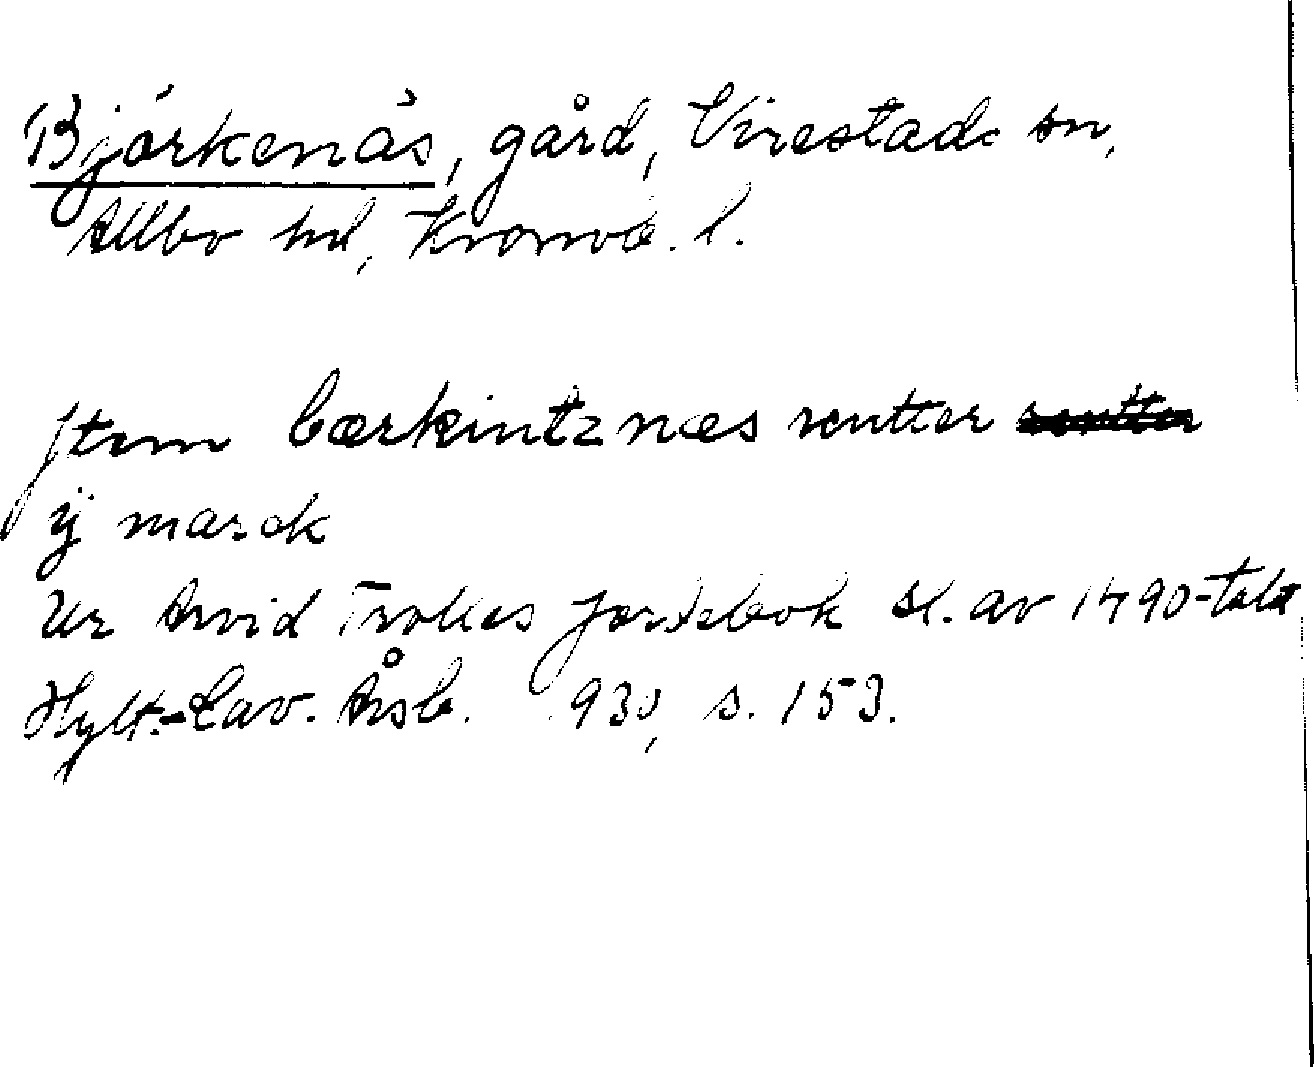 Björkenäs, gård, Virestads sn,
Allbo hd, Kronob. l.
Jtem bærkintznæs rentter
ij marck
Ur Arvid Trolles jordebok sl. av 1490-talet
Hylt.-Cav. Årsb. 930, s. 153.